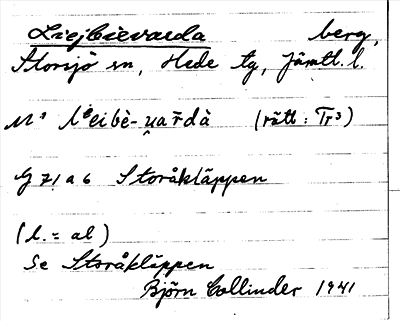 Liejbievarda berg,
Storsjö sn, Hede tg, Jämtl. l.
M¹ lèibè-u̯ar̄dà (rätt: Tr³)
G 71 a 6 Storåkläppen
(l. = al)
Se Storåkläppen
Björn Collinder 1941